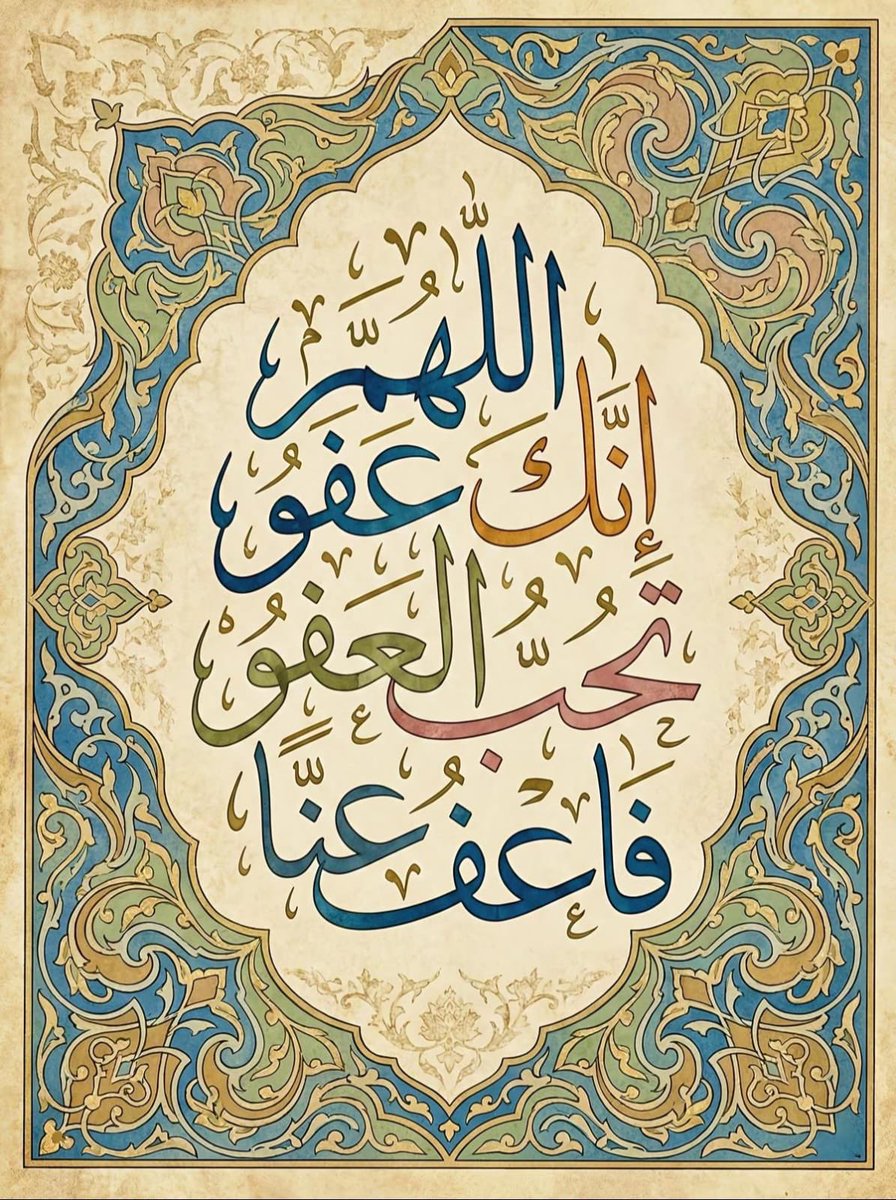 اللّهُمَّ
إِنَّكَ عَفُوُ
تُحُبُّ الْعَفُوُ
فَاعفُ عَنَّا